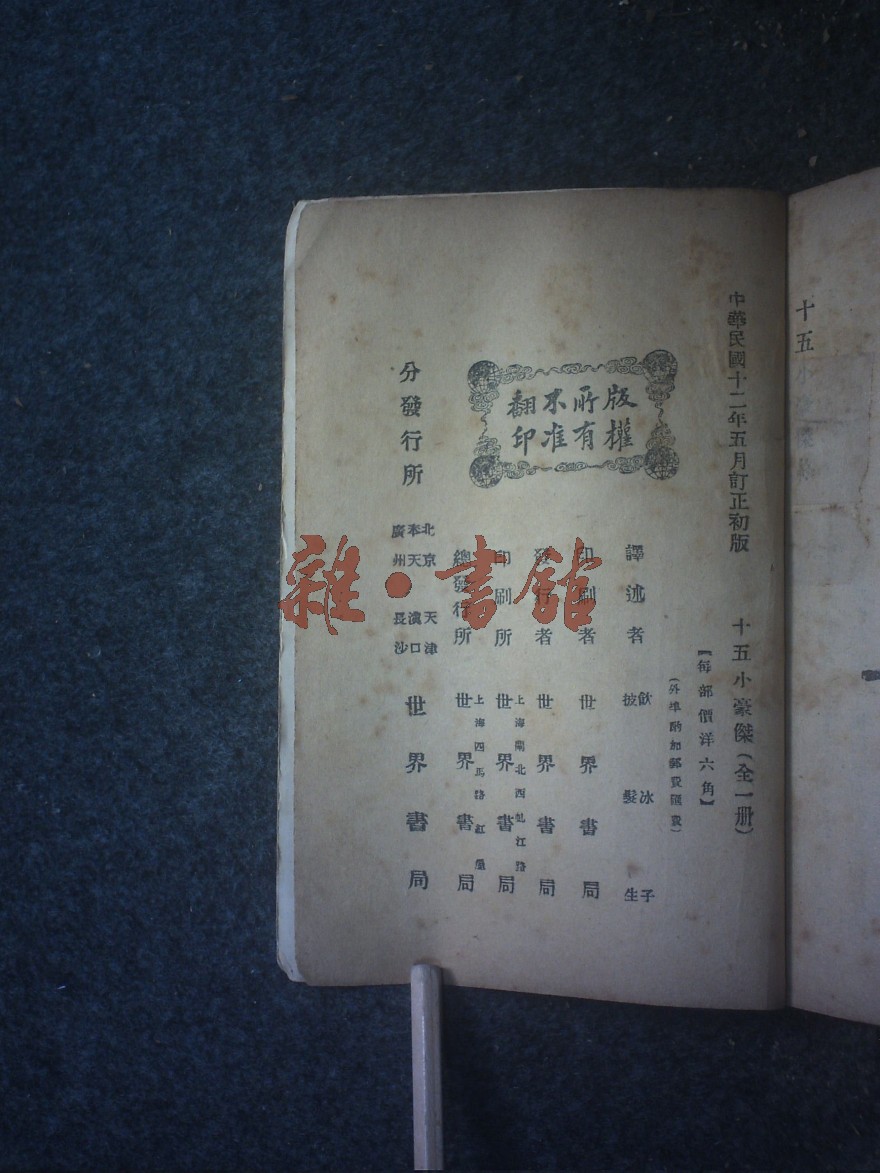 十五小豪傑
中華民國十二年五月訂正初版
十五小豪傑(全一册)
【每部價洋六角】
(外埠酌加郵費匯費)
版權
所有
不准
翻印
譯述者
飲冰子
披髮生
印刷者
世界書局
發行者
世界書局
印刷所
上海閘北西虬江路
世界書局
總發行所
上海四馬路紅屋
世界書局
分發行所
北京 天津
奉天 漢口
廣州 長沙
世界書局
雜·書館